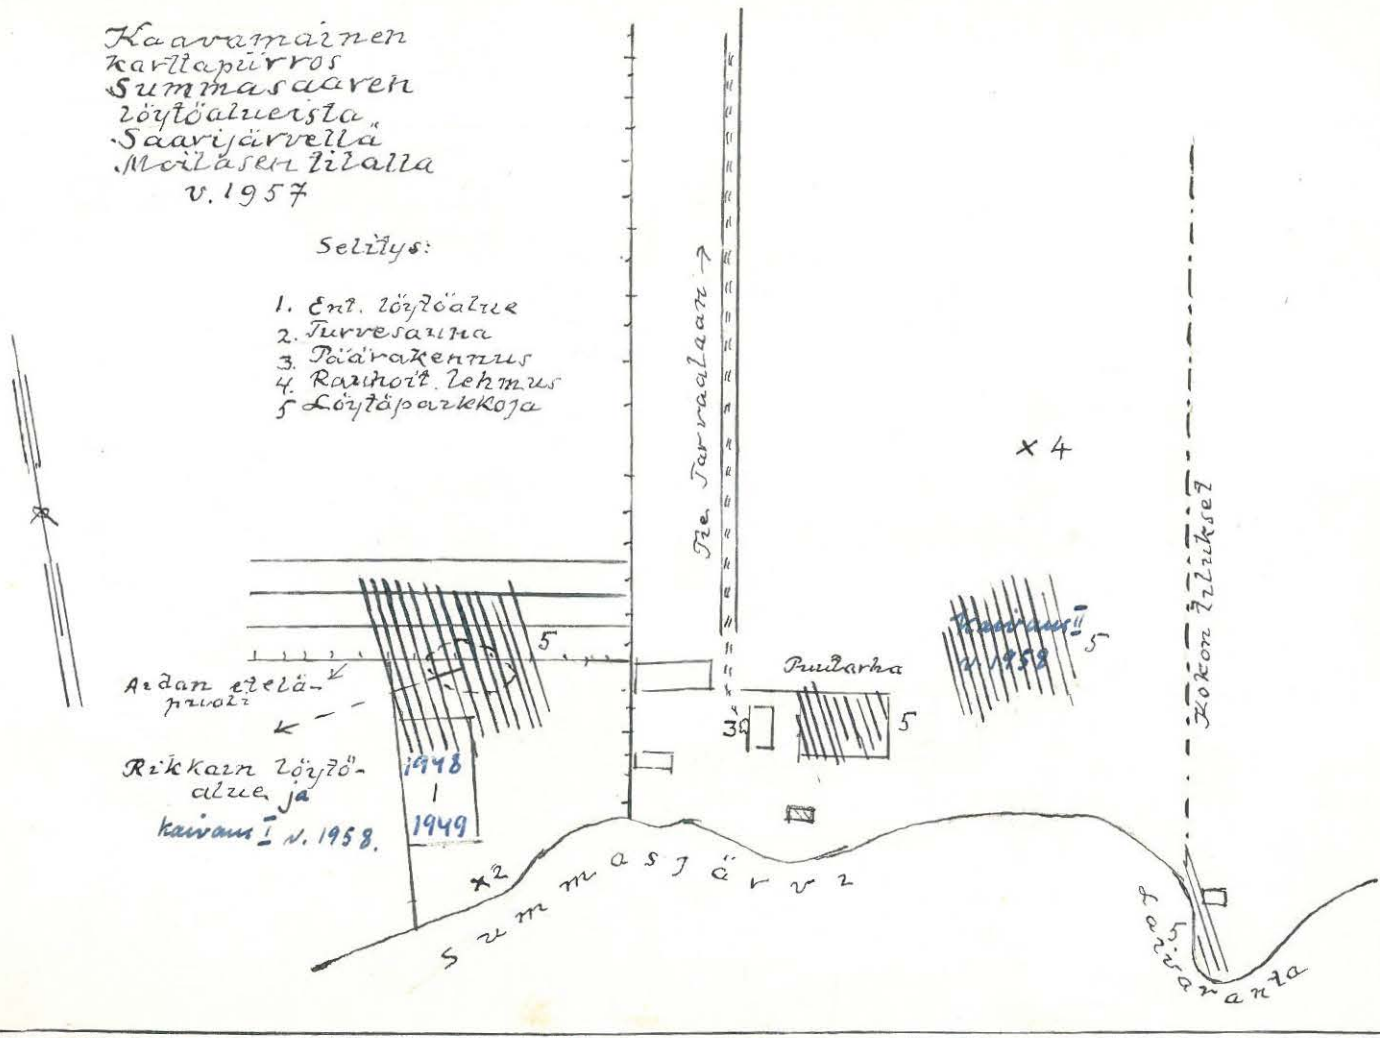 Kaavamainen
karttapiirros
Summasaaren
löytöalueista
Saarijärvellä
Moilasen tilalla
v. 1957
Selitys:
1. Ent. löytöalue
2. Turvesauna
3. Päärakennus
4. Rauhoit. lehmus
5 Löytöpaikkoja
Tie Tarvaalaan →
x 4
Kokon tilukset
5
Kaivaus II
v. 1958
5
Puutarha
5
3
Aidan etelä-
puoli
Rikkain löytö-
alue ja
kaivaus I v. 1958.
1948
1949
x 2
Summasjärvi
5
Laivaranta